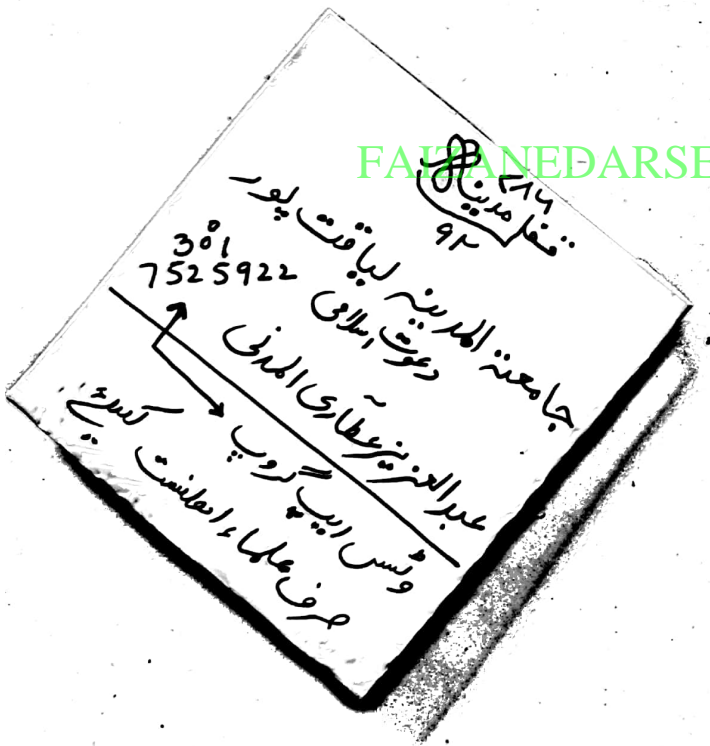 FAIZANEDARSE
۷۸۶
قفل مدینہ
۹۲
جامعۃ المدینہ لیاقت پور
دعوت اسلامی
301
7525922
عبدالعزیز عطاری المدنی
وٹس ایپ گروپ
صرف علماء اہلسنت کیلئے